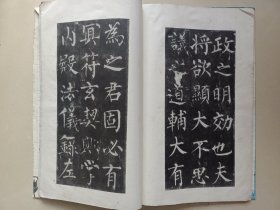 政之明効也夫
將欲顯大不思
議之道輔大有
為之君固必有
冥符玄契歟掌
内殿法儀錄左